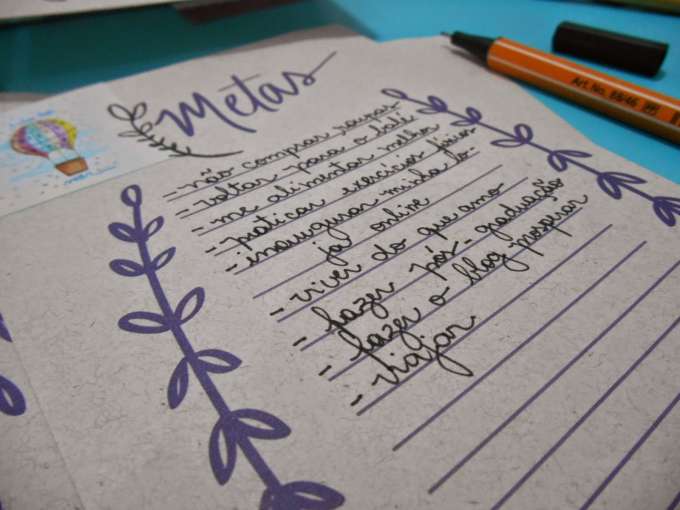 Metas
- não comprar roupas
- voltar para o balé
- me alimentar melhor
- praticar exercícios físicos
- inaugurar minha lo-
ja online
- viver do que amo
- fazer pós-graduação
- fazer o blog prosperar
- viajar
Art. No. 88/46